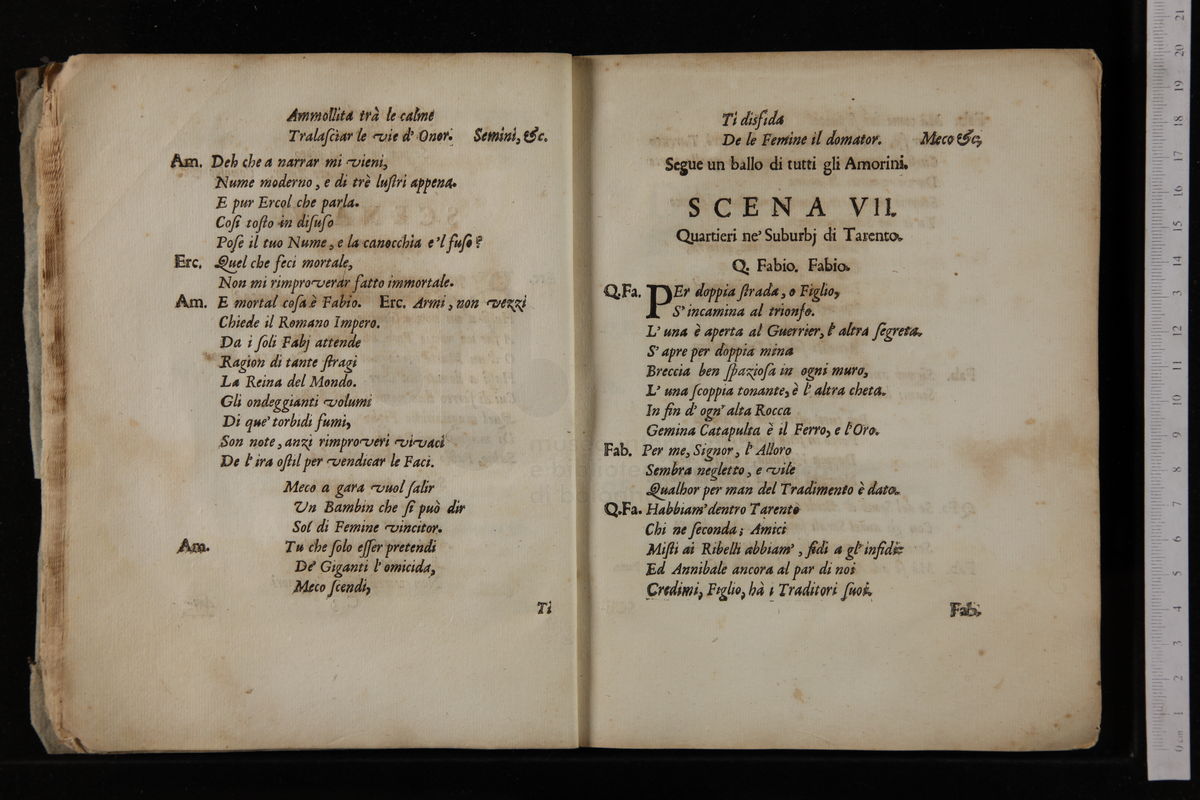 Ammollita trà le calme
Tralaſciar le vie d' Onor. Semini, &c.
Am. Deh che a narrar mi vieni,
Nume moderno, e di trè luſtri appena.
E pur Ercol che parla.
Coſi toſto in diſuſo
Poſe il tuo Nume, e la canocchia e'l fuſo?
Erc. Quel che feci mortale,
Non mi rimproverar fatto immortale.
Am. E mortal coſa è Fabio. Erc. Armi, non vezzi
Chiede il Romano Impero.
Da i ſoli Fabj attende
Ragion di tante ſtragi
La Reina del Mondo.
Gli ondeggianti volumi
Di que' torbidi fumi,
Son note, anzi rimproveri vivaci
De l'ira oſtil per vendicar le Faci.
Meco a gara vuol ſalir
Un Bambin che ſi può dir
Sol di Femine vincitor.
Am. Tu che ſolo eſſer pretendi
De' Giganti l'omicida,
Meco ſcendi,
Ti
Ti disfida
De le Femine il domator. Meco &c,
Segue un ballo di tutti gli Amorini.
SCENA VII.
Quartieri ne' Suburbj di Tarento.
Q. Fabio. Fabio.
Q.Fa. PEr doppia ſtrada, o Figlio,
S'incamina al trionfo.
L' una è aperta al Guerrier, l' altra ſegreta.
S' apre per doppia mina
Breccia ben ſpazioſa in ogni muro,
L' una ſcoppia tonante, è l' altra cheta.
In fin d' ogn' alta Rocca
Gemina Catapulta è il Ferro, e l'Oro.
Fab. Per me, Signor, l' Alloro
Sembra negletto, e vile
Qualhor per man del Tradimento è dato.
Q.Fa. Habbiam' dentro Tarento
Chi ne ſeconda; Amici
Miſti ai Ribelli abbiam', fidi a gl' infidi:
Ed Annibale ancora al par di noi
Credimi, Figlio, hà i Traditori ſuoi.
Fab.